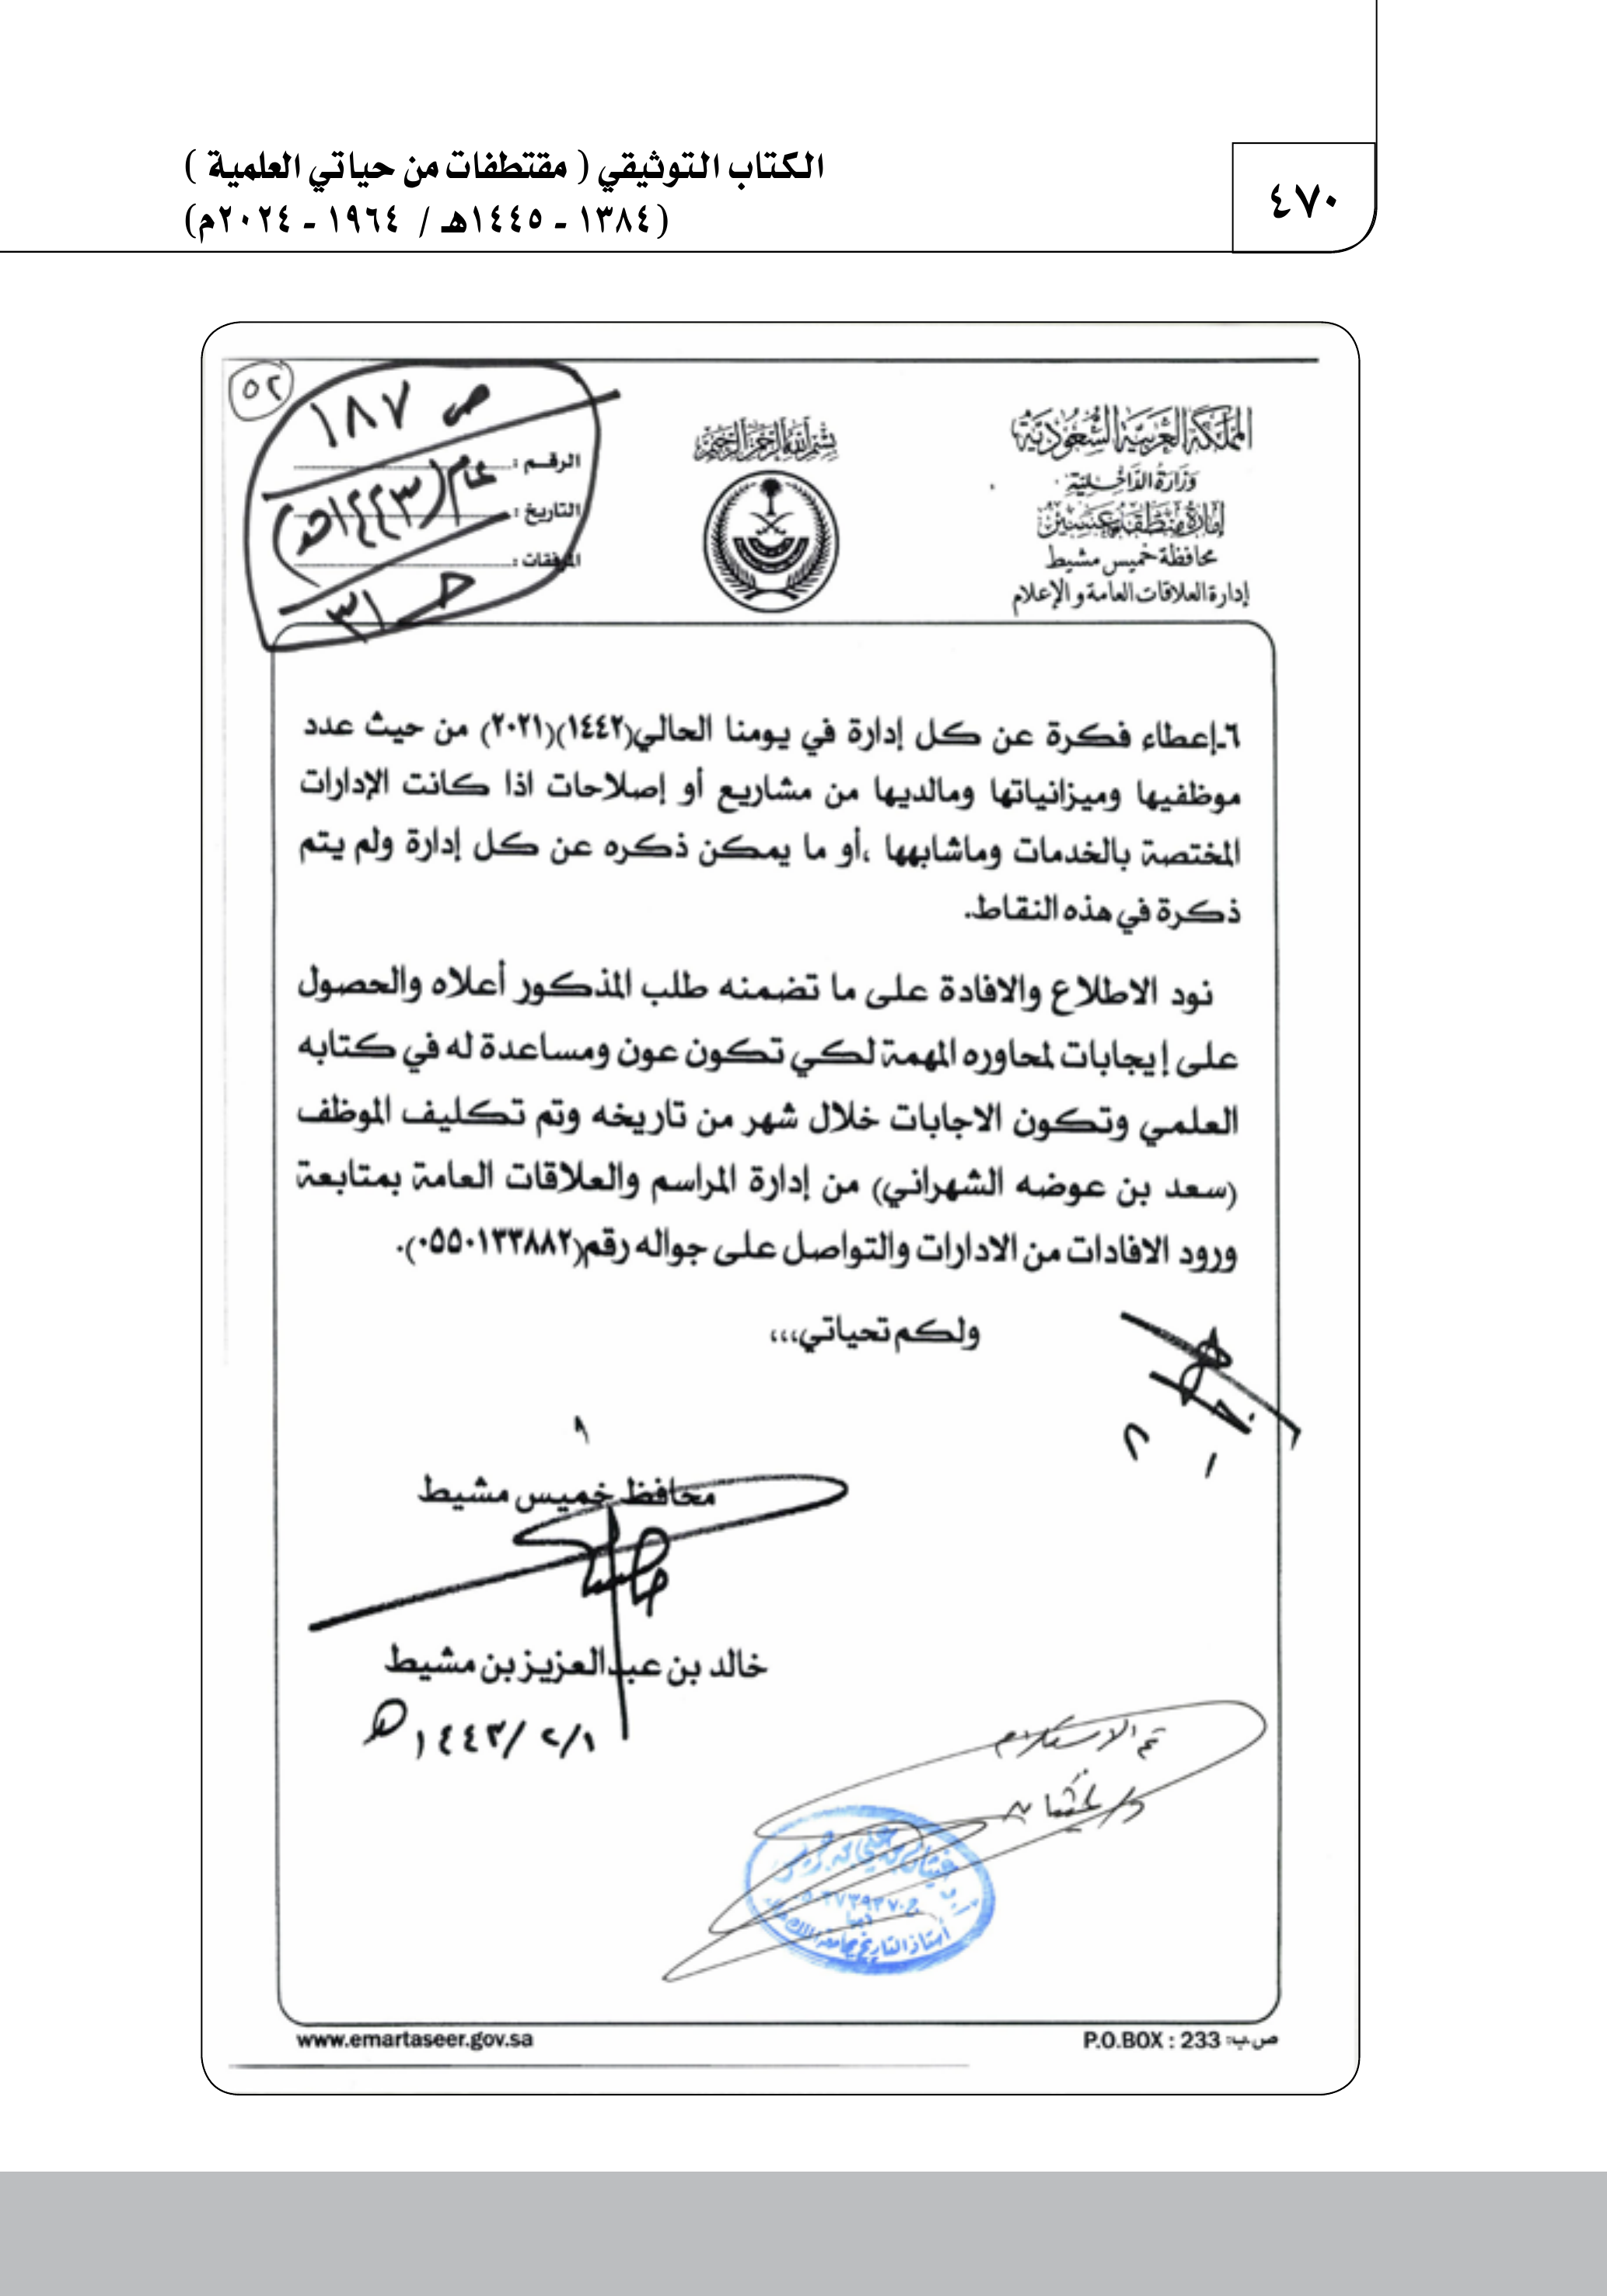 ٤٧٠
الكتاب التوثيقي ( مقتطفات من حياتي العلمية )
(١٣٨٤ - ١٤٤٥هـ / ١٩٦٤ - ٢٠٢٤م)
المملكة العربية السعودية
وزارة الداخلية
إمارة منطقة عسير
محافظة خميس مشيط
إدارة العلاقات العامة و الإعلام
بسم الله الرحمن الرحيم
٥٢
ص ١٨٧
الرقـم :
عام (١٤٤٣هـ)
التاريخ :
المرفقات :
حـ ٣١
٦-إعطاء فكرة عن كل إدارة في يومنا الحالي(١٤٤٢)(٢٠٢١) من حيث عدد
موظفيها وميزانياتها ومالديها من مشاريع أو إصلاحات اذا كانت الإدارات
المختصة بالخدمات وماشابهها ،أو ما يمكن ذكره عن كل إدارة ولم يتم
ذكرة في هذه النقاط.
نود الاطلاع والافادة على ما تضمنه طلب المذكور أعلاه والحصول
على إيجابات لمحاوره المهمة لكي تكون عون ومساعدة له في كتابه
العلمي وتكون الاجابات خلال شهر من تاريخه وتم تكليف الموظف
(سعد بن عوضه الشهراني) من إدارة المراسم والعلاقات العامة بمتابعة
ورود الافادات من الادارات والتواصل على جواله رقم(٠٥٥٠١٣٣٨٨٢).
ولكم تحياتي،،،
محافظ خميس مشيط
خالد بن عبدالعزيز بن مشيط
١٤٤٣/٢/١هـ
تم الاستلام
أستاذ التاريخ بجامعة الملك خالد
www.emartaseer.gov.sa
P.O.BOX : 233 ص.ب: